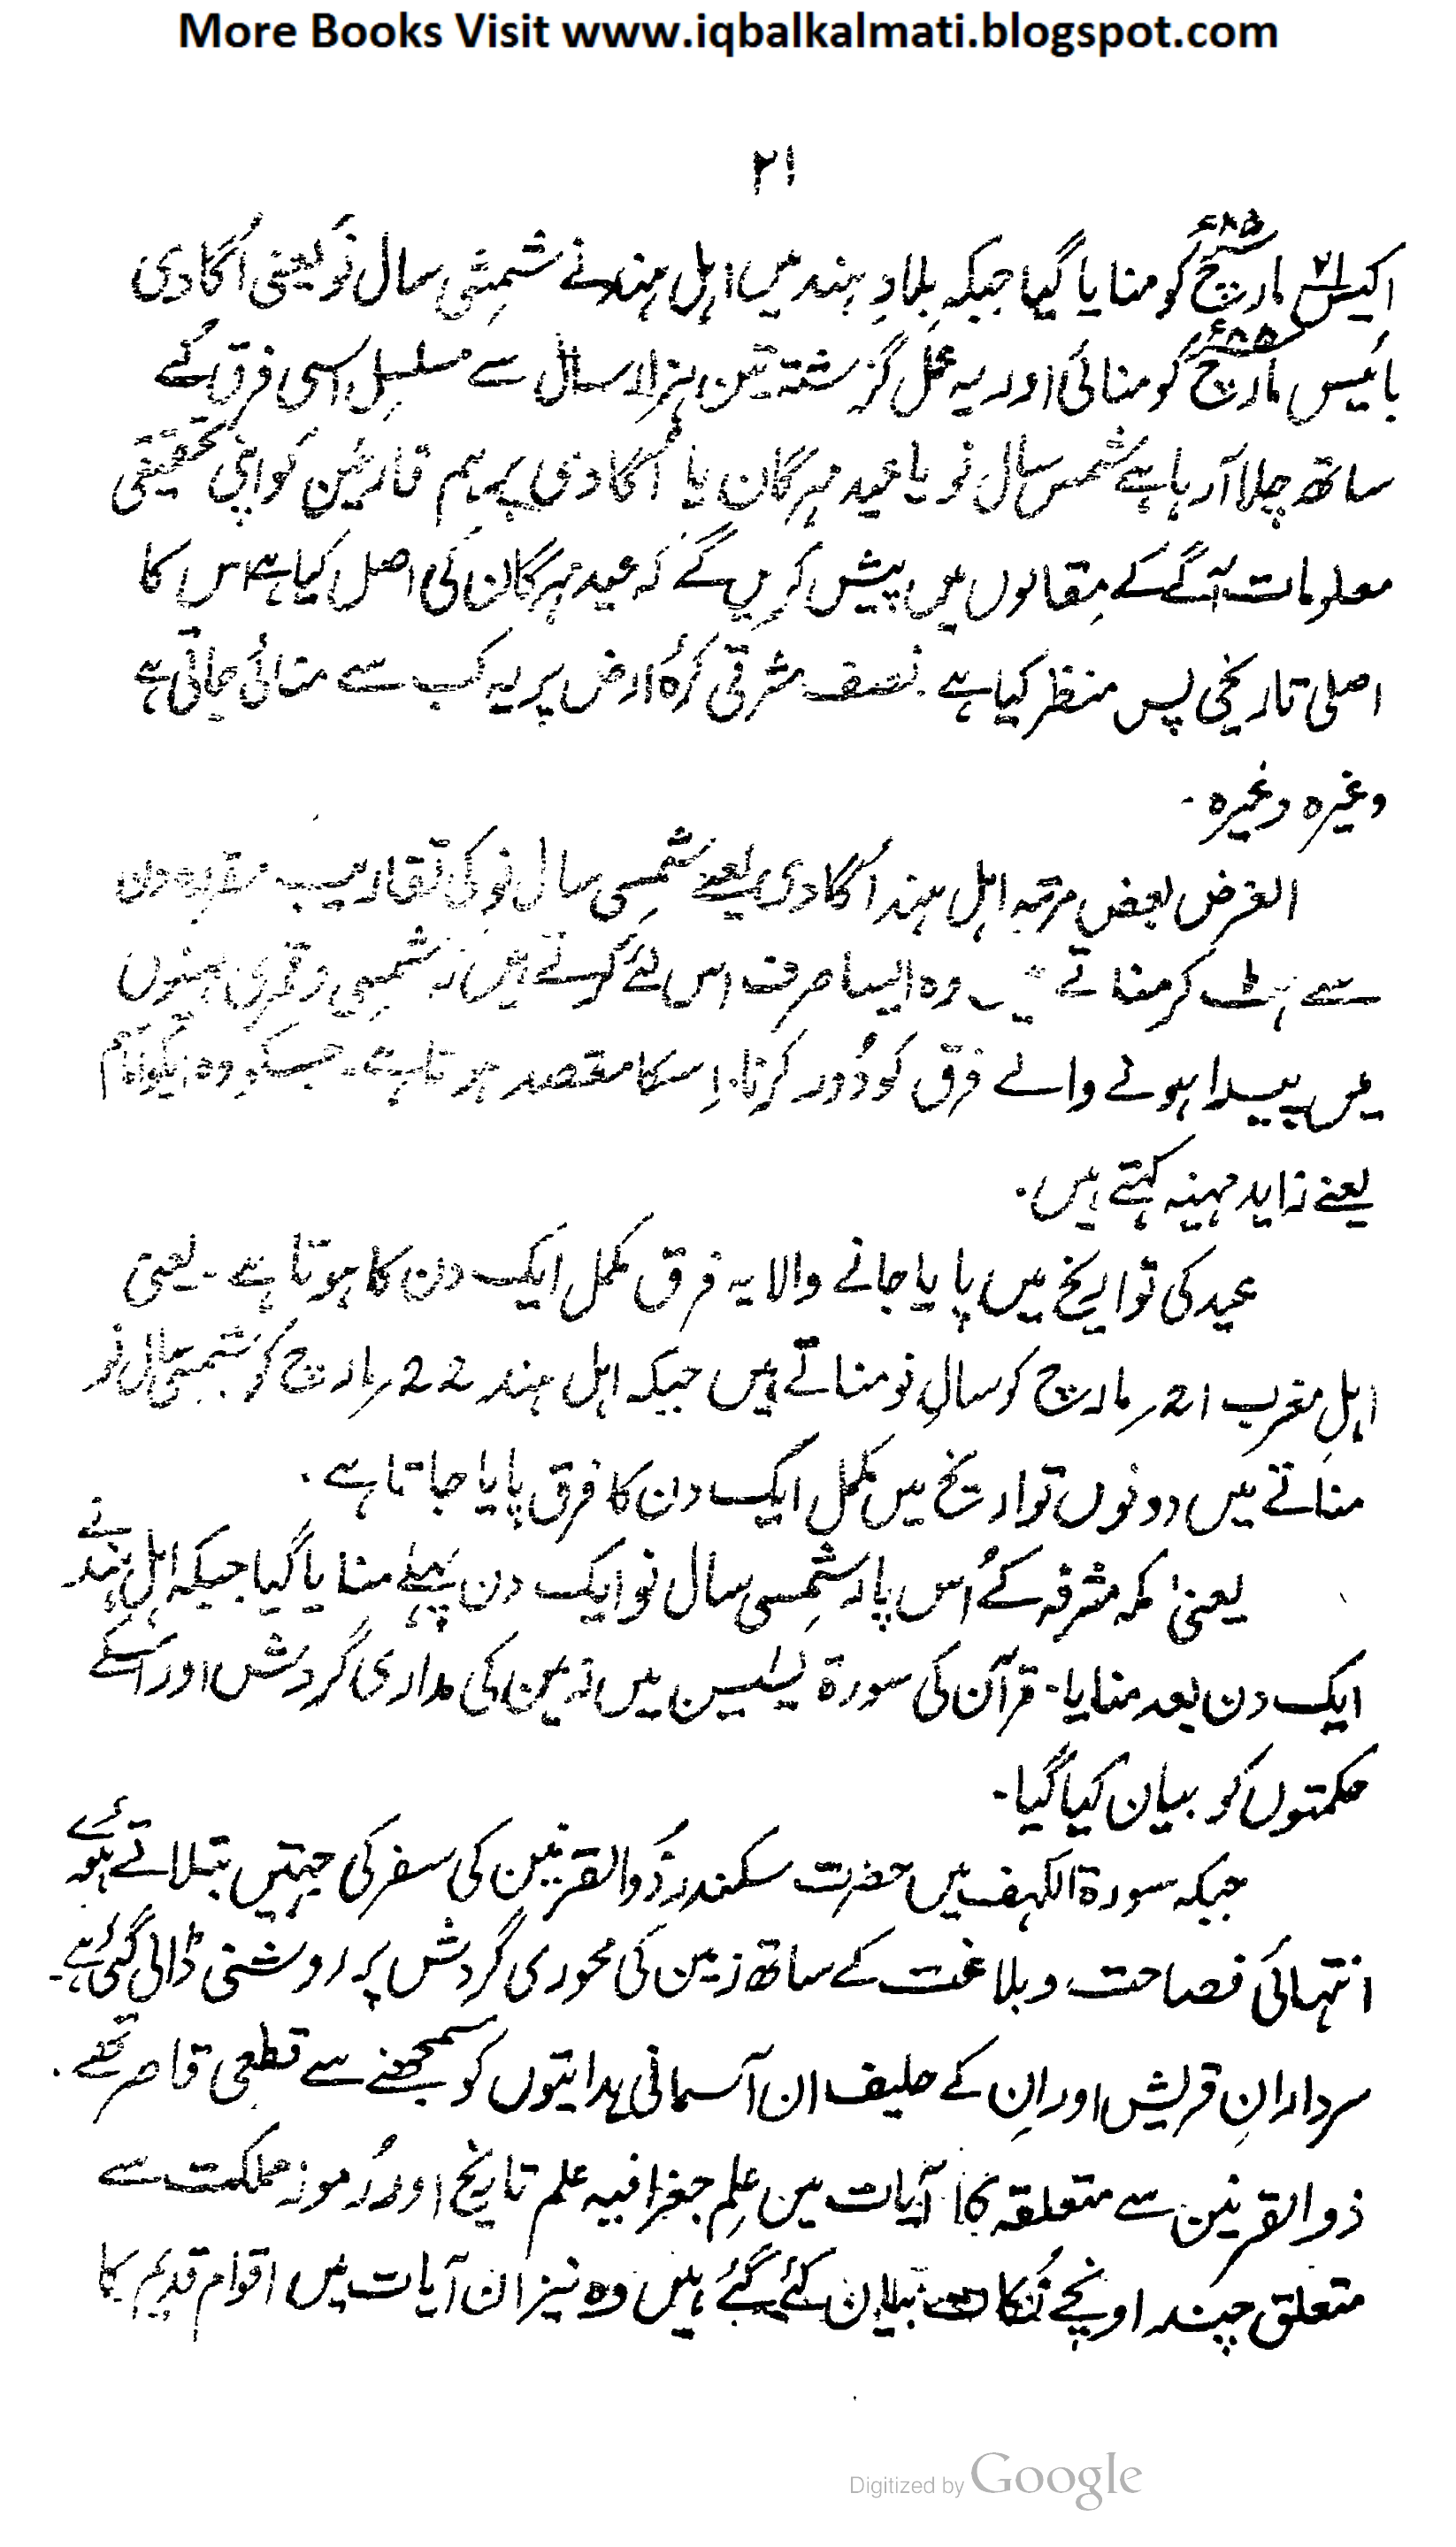 More Books Visit www.iqbalkalmati.blogspot.com
۲۱
اکیس مارچ ۸۵ء کو منایا گیا جبکہ بلادِ ہند میں اہل ہند نے شمسی سال نو یعنی اُگادی
بائیس مارچ ۸۵ء کو منائی اور یہ عمل گزشتہ تین ہزار سال سے مسلسل اسی فرق کے
ساتھ چلا آرہا ہے شمسی سال نو یا عید مہرگان یا اُگادی پر ہم قارئین کو اپنی تحقیقی
معلومات آگے کے مقالوں میں پیش کریں گے کہ عید مہرگان کی اصل کیا ہے اس کا
اصلی تاریخی پس منظر کیا ہے نصف مشرقی کرۂ ارض پر یہ کب سے منائی جاتی ہے
وغیرہ وغیرہ ۔
الغرض بعض مرتبہ اہل ہند اُگادی یعنے شمسی سال نو کی تقاریب مقررہ دن
سے ہٹ کر مناتے ہیں وہ ایسا صرف اس لئے کرتے ہیں کہ شمسی و قمری مہینوں
میں پیدا ہونے والے فرق کو دُور کرنا اِسکا مقصد ہوتا ہے ۔ جسکو وہ
یعنے زاید مہینہ کہتے ہیں ۔
عید کی تواریخ میں پایا جانے والا یہ فرق مکمل ایک دن کا ہوتا ہے ۔ یعنی
اہلِ مغرب 21 مارچ کو سالِ نو مناتے ہیں جبکہ اہل ہند 22 مارچ کو شمسی سال نو
مناتے ہیں دونوں تواریخ میں مکمل ایک دن کا فرق پایا جاتا ہے ۔
یعنی مکہ مشرفہ کے اُس پار شمسی سال نو ایک دن پہلے منایا گیا جبکہ اہل ہند نے
ایک دن بعد منایا ۔ قرآن کی سورۃ یٰسین میں زمین کی مداری گردش اور اسکے
حکمتوں کو بیان کیا گیا ۔
جبکہ سورۃ الکہف میں حضرت سکندر ذُوالقرنین کی سفر کی جہتیں بتلاتے ہوئے
انتہائی فصاحت و بلاغت کے ساتھ زمین کی محوری گردش پر روشنی ڈالی گئی ہے ۔
سردارانِ قریش اور اِن کے حلیف ان آسمانی ہدایتوں کو سمجھنے سے قطعی قاصر تھے ۔
ذوالقرنین سے متعلقہ آیات میں علِم جغرافیہ علم تاریخ اور رُموز مملکت سے
متعلق چند اونچے نُکات بیان کئے گئے ہیں وہ نیز ان آیات میں اقوام قدیم کا
Digitized by Google